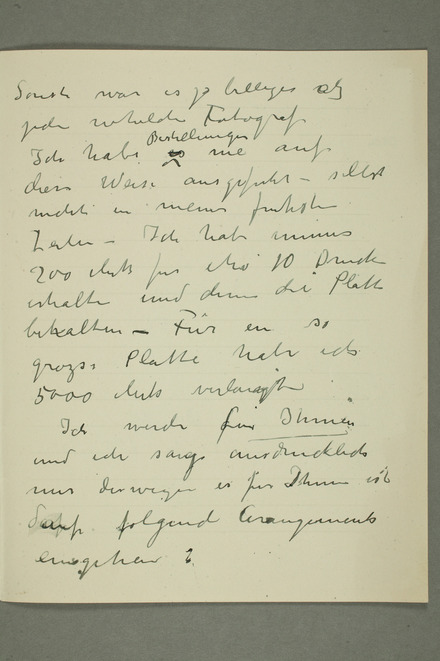 Sonst war es ja billiger als
jede Fotograf
Bestellungen
Ich habe nie auf
diese Weise ausgefuhrt – selbst
nicht in meine fruhste
Zeiten – Ich habe immer
200 Mk fur 10 Drucke
erhalten und dann die Platte
behalten – Für en so
grosse Platte habe ich
5000 Mk verlangt
Ich werde für Ihnen
und ich sage ausdrucklich
nur deswegen es fur Ihnen ist
folgend Arangements
eingehen :